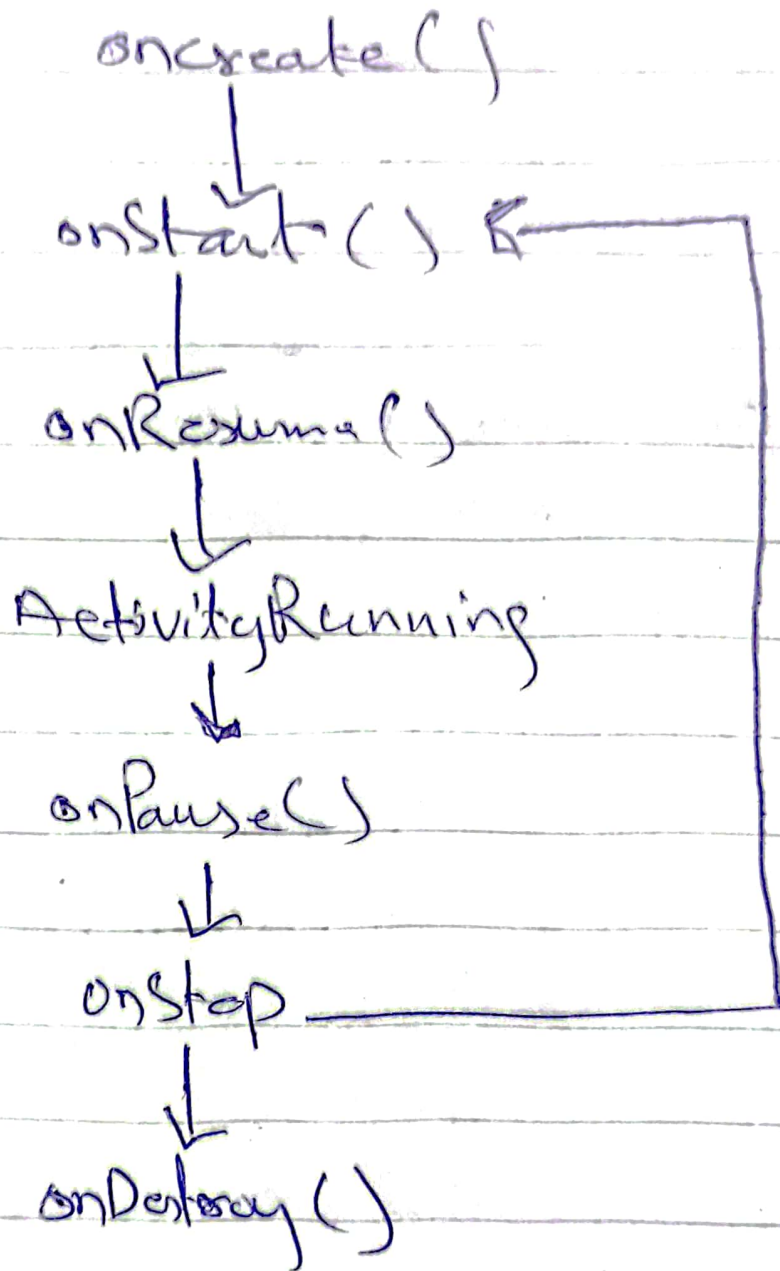 oncreate()
onStart()
onResume()
ActivityRunning
onPause()
onStop
onDestroy()